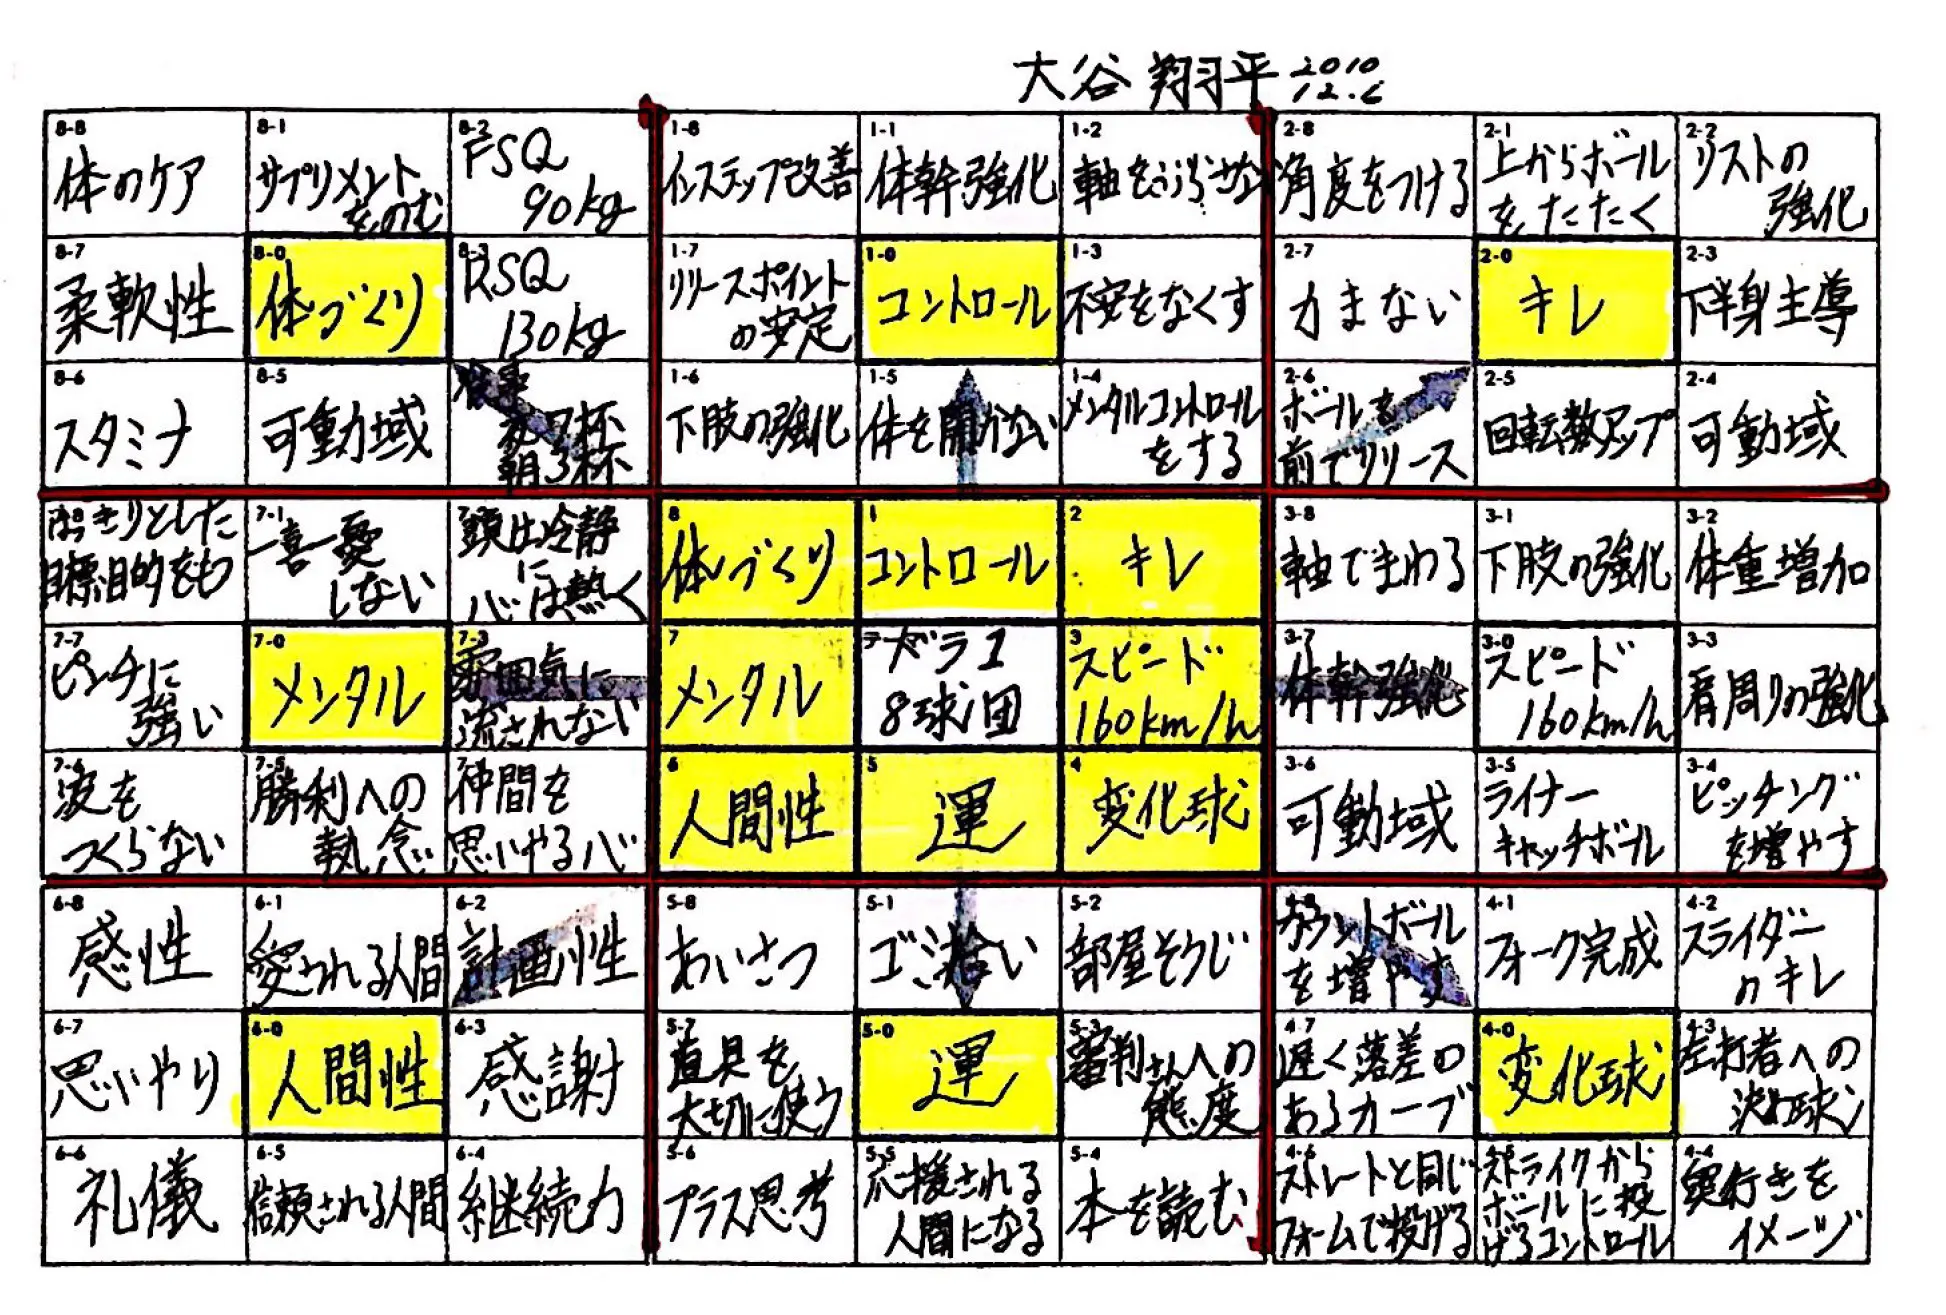 大谷 翔平 2010
12.6
8-8
体のケア
8-1
サプリメント
をのむ
8-2
FSQ
90kg
1-8
インステップ改善
1-1
体幹強化
1-2
軸をぶらさない
2-8
角度をつける
2-1
上からボール
をたたく
2-2
リストの
強化
8-7
柔軟性
8-0
体づくり
8-3
RSQ
130kg
1-7
リリースポイント
の安定
1-0
コントロール
1-3
不安をなくす
2-7
力まない
2-0
キレ
2-3
下半身主導
8-6
スタミナ
8-5
可動域
夜7杯
朝3杯
1-6
下肢の強化
1-5
体を開かない
1-4
メンタルコントロール
をする
2-6
ボールを
前でリリース
2-5
回転数アップ
2-4
可動域
はっきりとした
目標、目的をもつ
7-1
一喜一憂
しない
頭は冷静
に
心は熱く
8
体づくり
1
コントロール
2
キレ
3-8
軸でまわる
3-1
下肢の強化
3-2
体重増加
7-7
ピンチに
強い
7-0
メンタル
7-3
雰囲気に
流されない
7
メンタル
ドラ1
8球団
3
スピード
160km/h
3-7
体幹強化
3-0
スピード
160km/h
3-3
肩周りの強化
7-6
波を
つくらない
7-5
勝利への
執念
仲間を
思いやる心
6
人間性
5
運
4
変化球
3-6
可動域
3-5
ライナー
キャッチボール
3-4
ピッチング
を増やす
6-8
感性
6-1
愛される人間
6-2
計画性
5-8
あいさつ
5-1
ゴミ拾い
5-2
部屋そうじ
4-8
カウントボール
を増やす
4-1
フォーク完成
4-2
スライダー
のキレ
6-7
思いやり
6-0
人間性
6-3
感謝
5-7
道具を
大切に使う
5-0
運
5-3
審判さんへの
態度
4-7
遅く落差の
あるカーブ
4-0
変化球
4-3
左打者への
決め球
6-6
礼儀
6-5
信頼される人間
6-4
継続力
5-6
プラス思考
5-5
応援される
人間になる
5-4
本を読む
4-6
ストレートと同じ
フォームで投げる
4-5
ストライクから
ボールに投
げるコントロール
4-4
奥行きを
イメージ